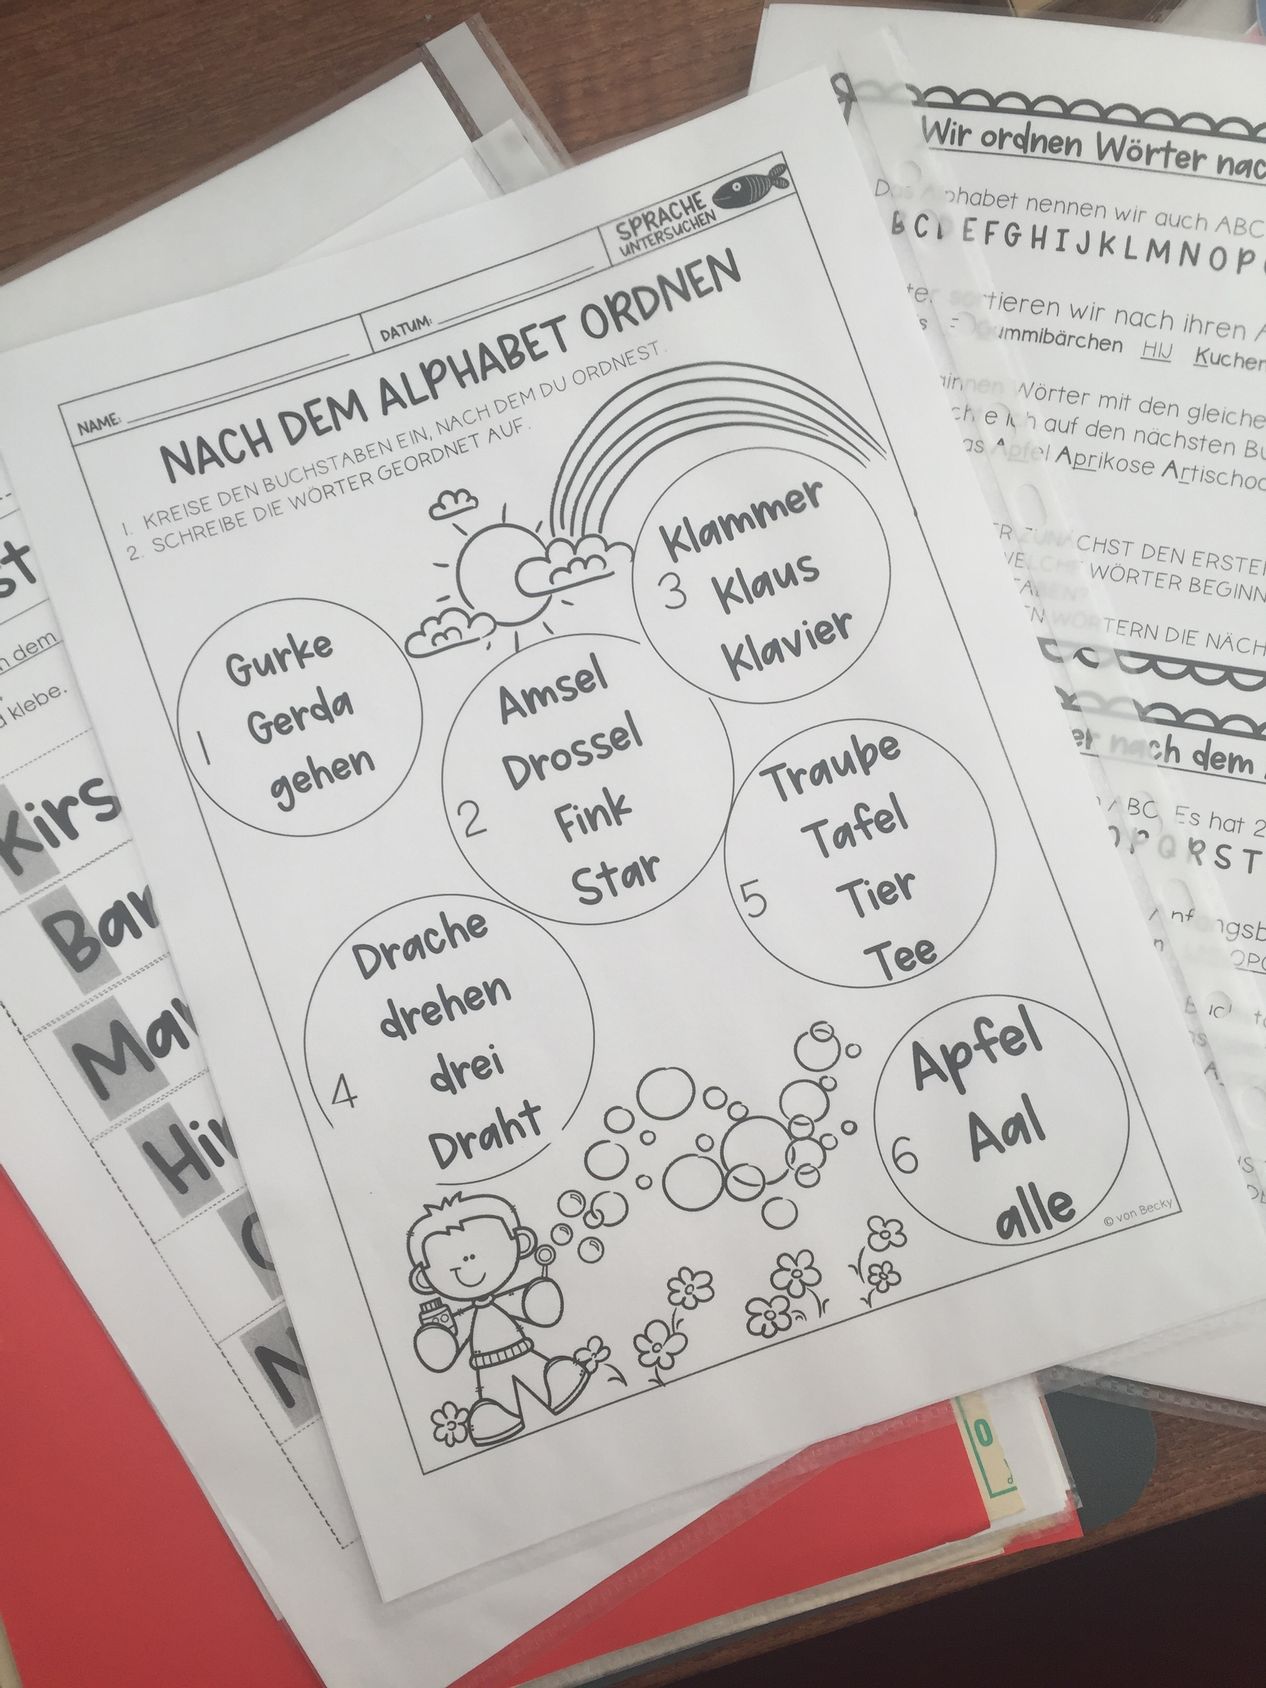 NAME:
DATUM:
SPRACHE
UNTERSUCHEN
NACH DEM ALPHABET ORDNEN
1. KREISE DEN BUCHSTABEN EIN, NACH DEM DU ORDNEST.
2. SCHREIBE DIE WÖRTER GEORDNET AUF.
1
Gurke
Gerda
gehen
2
Amsel
Drossel
Fink
Star
3
Klammer
Klaus
Klavier
4
Drache
drehen
drei
Draht
5
Traube
Tafel
Tier
Tee
6
Apfel
Aal
alle
© von Becky
Wir ordnen Wörter
Das Alphabet nennen wir auch ABC
B C D E F G H I J K L M N O P
sortieren wir nach ihren
ummibärchen HIJ Kuchen
Wörter mit den
auf den nächsten
Apfel Aprikose
ZUNÄCHST DEN
WELCHE WÖRTER
WÖRTERN DIE
nach dem
ABC. Es hat
P Q R S T
dem
klebe.